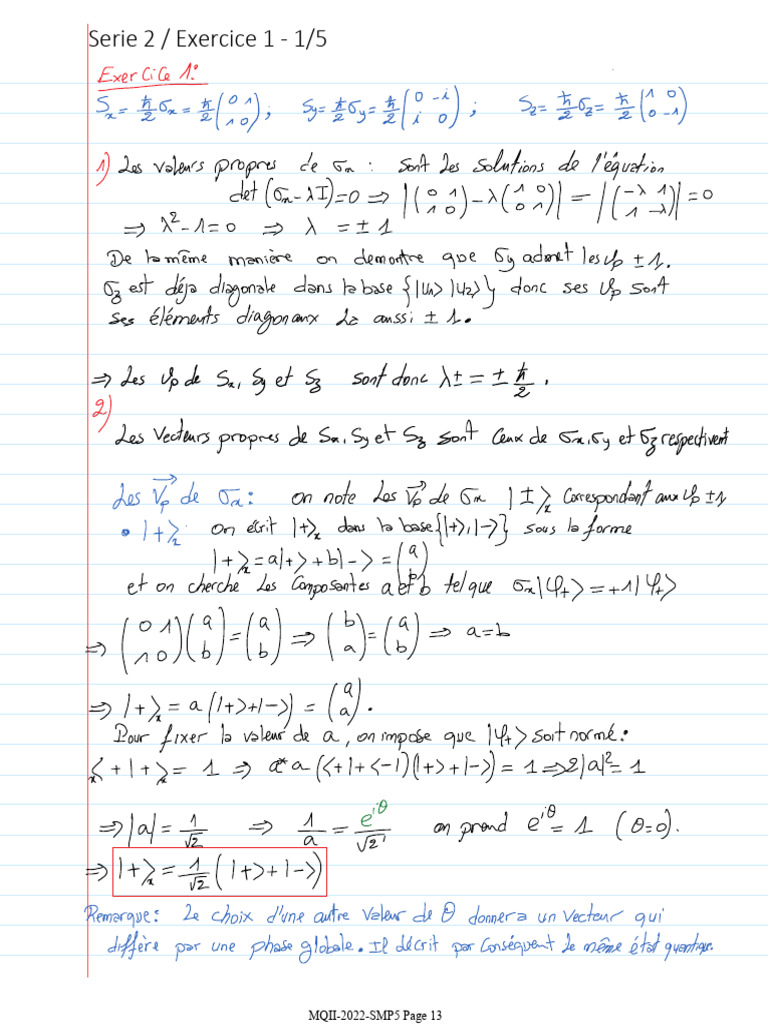 Serie 2 / Exercice 1 - 1/5
Exercice 1:
Sx = ħ/2 σx = ħ/2 (0 1; 1 0); Sy = ħ/2 σy = ħ/2 (0 -i; i 0); Sz = ħ/2 σz = ħ/2 (1 0; 0 -1)
1) Les valeurs propres de σx : sont les solutions de l'équation
det(σx - λI) = 0 ⇒ |(0 1; 1 0) - λ(1 0; 0 1)| = |(-λ 1; 1 -λ)| = 0
⇒ λ² - 1 = 0 ⇒ λ = ± 1
De la même manière on demontre que σy admet les vp ± 1.
σz est déja diagonale dans la base {|u1> |u2>} donc ses vp sont
ses éléments diagonaux là aussi ± 1.
⇒ Les vp de Sx, Sy et Sz sont donc λ± = ± ħ/2.
2)
Les Vecteurs propres de Sx, Sy et Sz sont ceux de σx, σy et σz respectivent
Les V⃗p de σx : on note les V⃗p de σx |±>x correspondant aux vp ± 1
• |+>x on écrit |+>x dans la base {|+>, |->} sous la forme
|+>x = a|+> + b|-> = (a; b)
et on cherche les composantes a et b tel que σx|φ+> = +1|φ+>
⇒ (0 1; 1 0)(a; b) = (a; b) ⇒ (b; a) = (a; b) ⇒ a = b
⇒ |+>x = a(|+> + |->) = (a; a).
Pour fixer la valeur de a, on impose que |φ+> soit normé :
x<+|+>x = 1 ⇒ a* a (<+| + <-|)(|+> + |->) = 1 ⇒ 2|a|² = 1
⇒ |a| = 1/√2 ⇒ 1/a = e^iθ/√2 on prend e^iθ = 1 (θ=0).
⇒ |+>x = 1/√2 (|+> + |->)
Remarque : Le choix d'une autre valeur de θ donnera un vecteur qui
diffère par une phase globale. Il décrit par conséquent le même état quantique.
MQII-2022-SMP5 Page 13